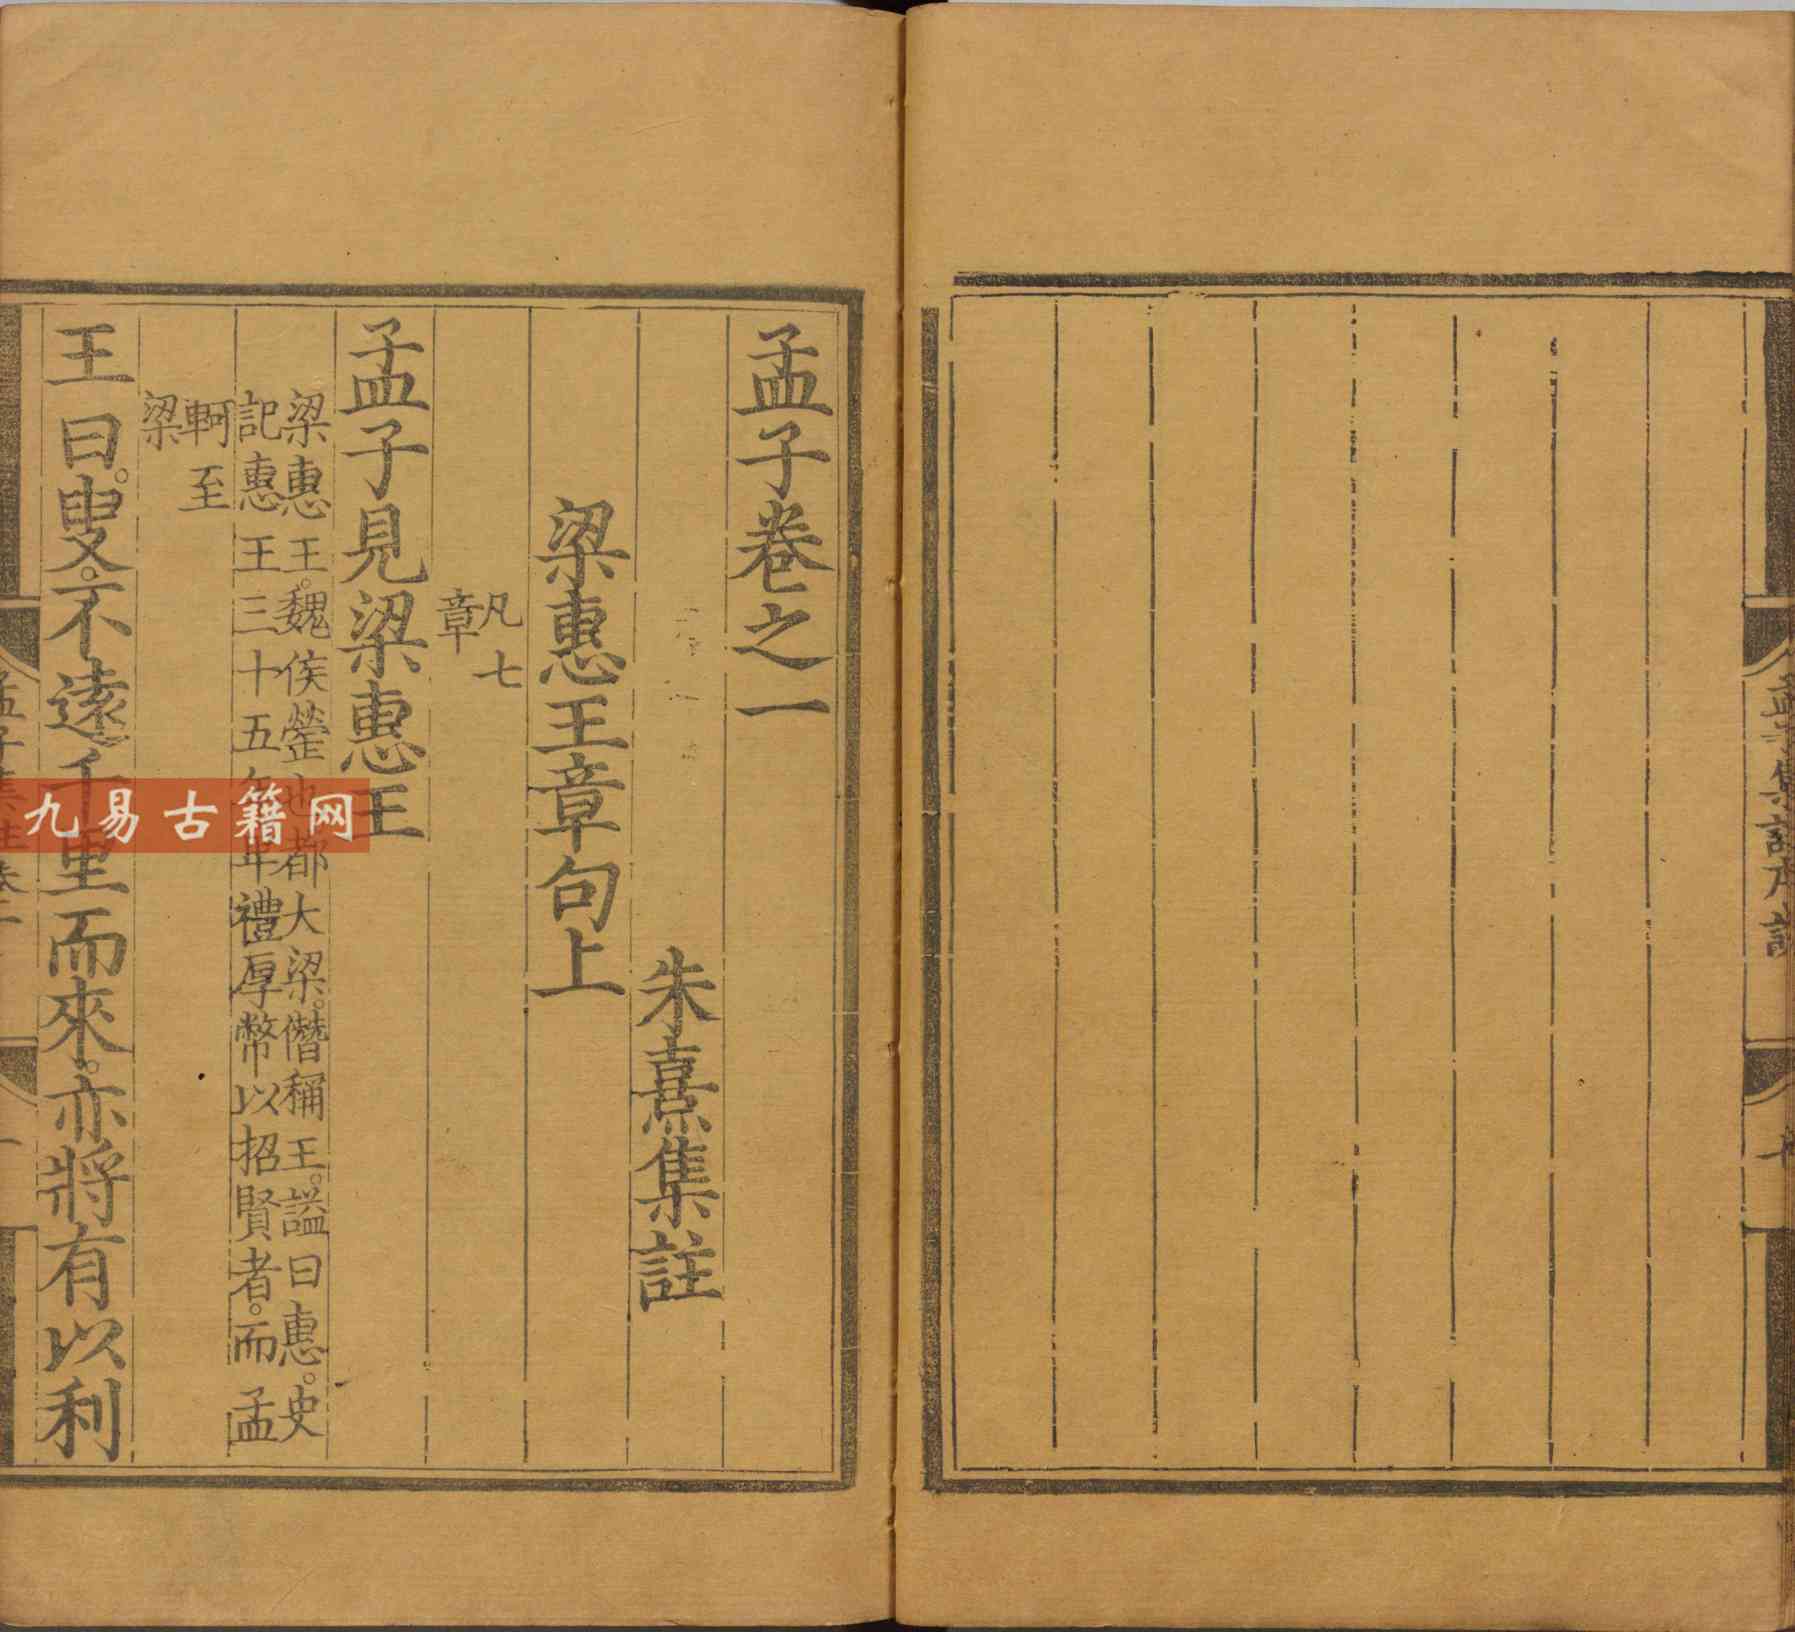 孟子卷之一
朱熹集註
梁惠王章句上
凡七
章
孟子見梁惠王
梁惠王。魏侯罃也都大梁。僭稱王。謚曰惠。史
記惠王三十五年禮厚幣以招賢者。而孟
軻至
梁
王曰。叟。不遠千里而來。亦將有以利
九易古籍网